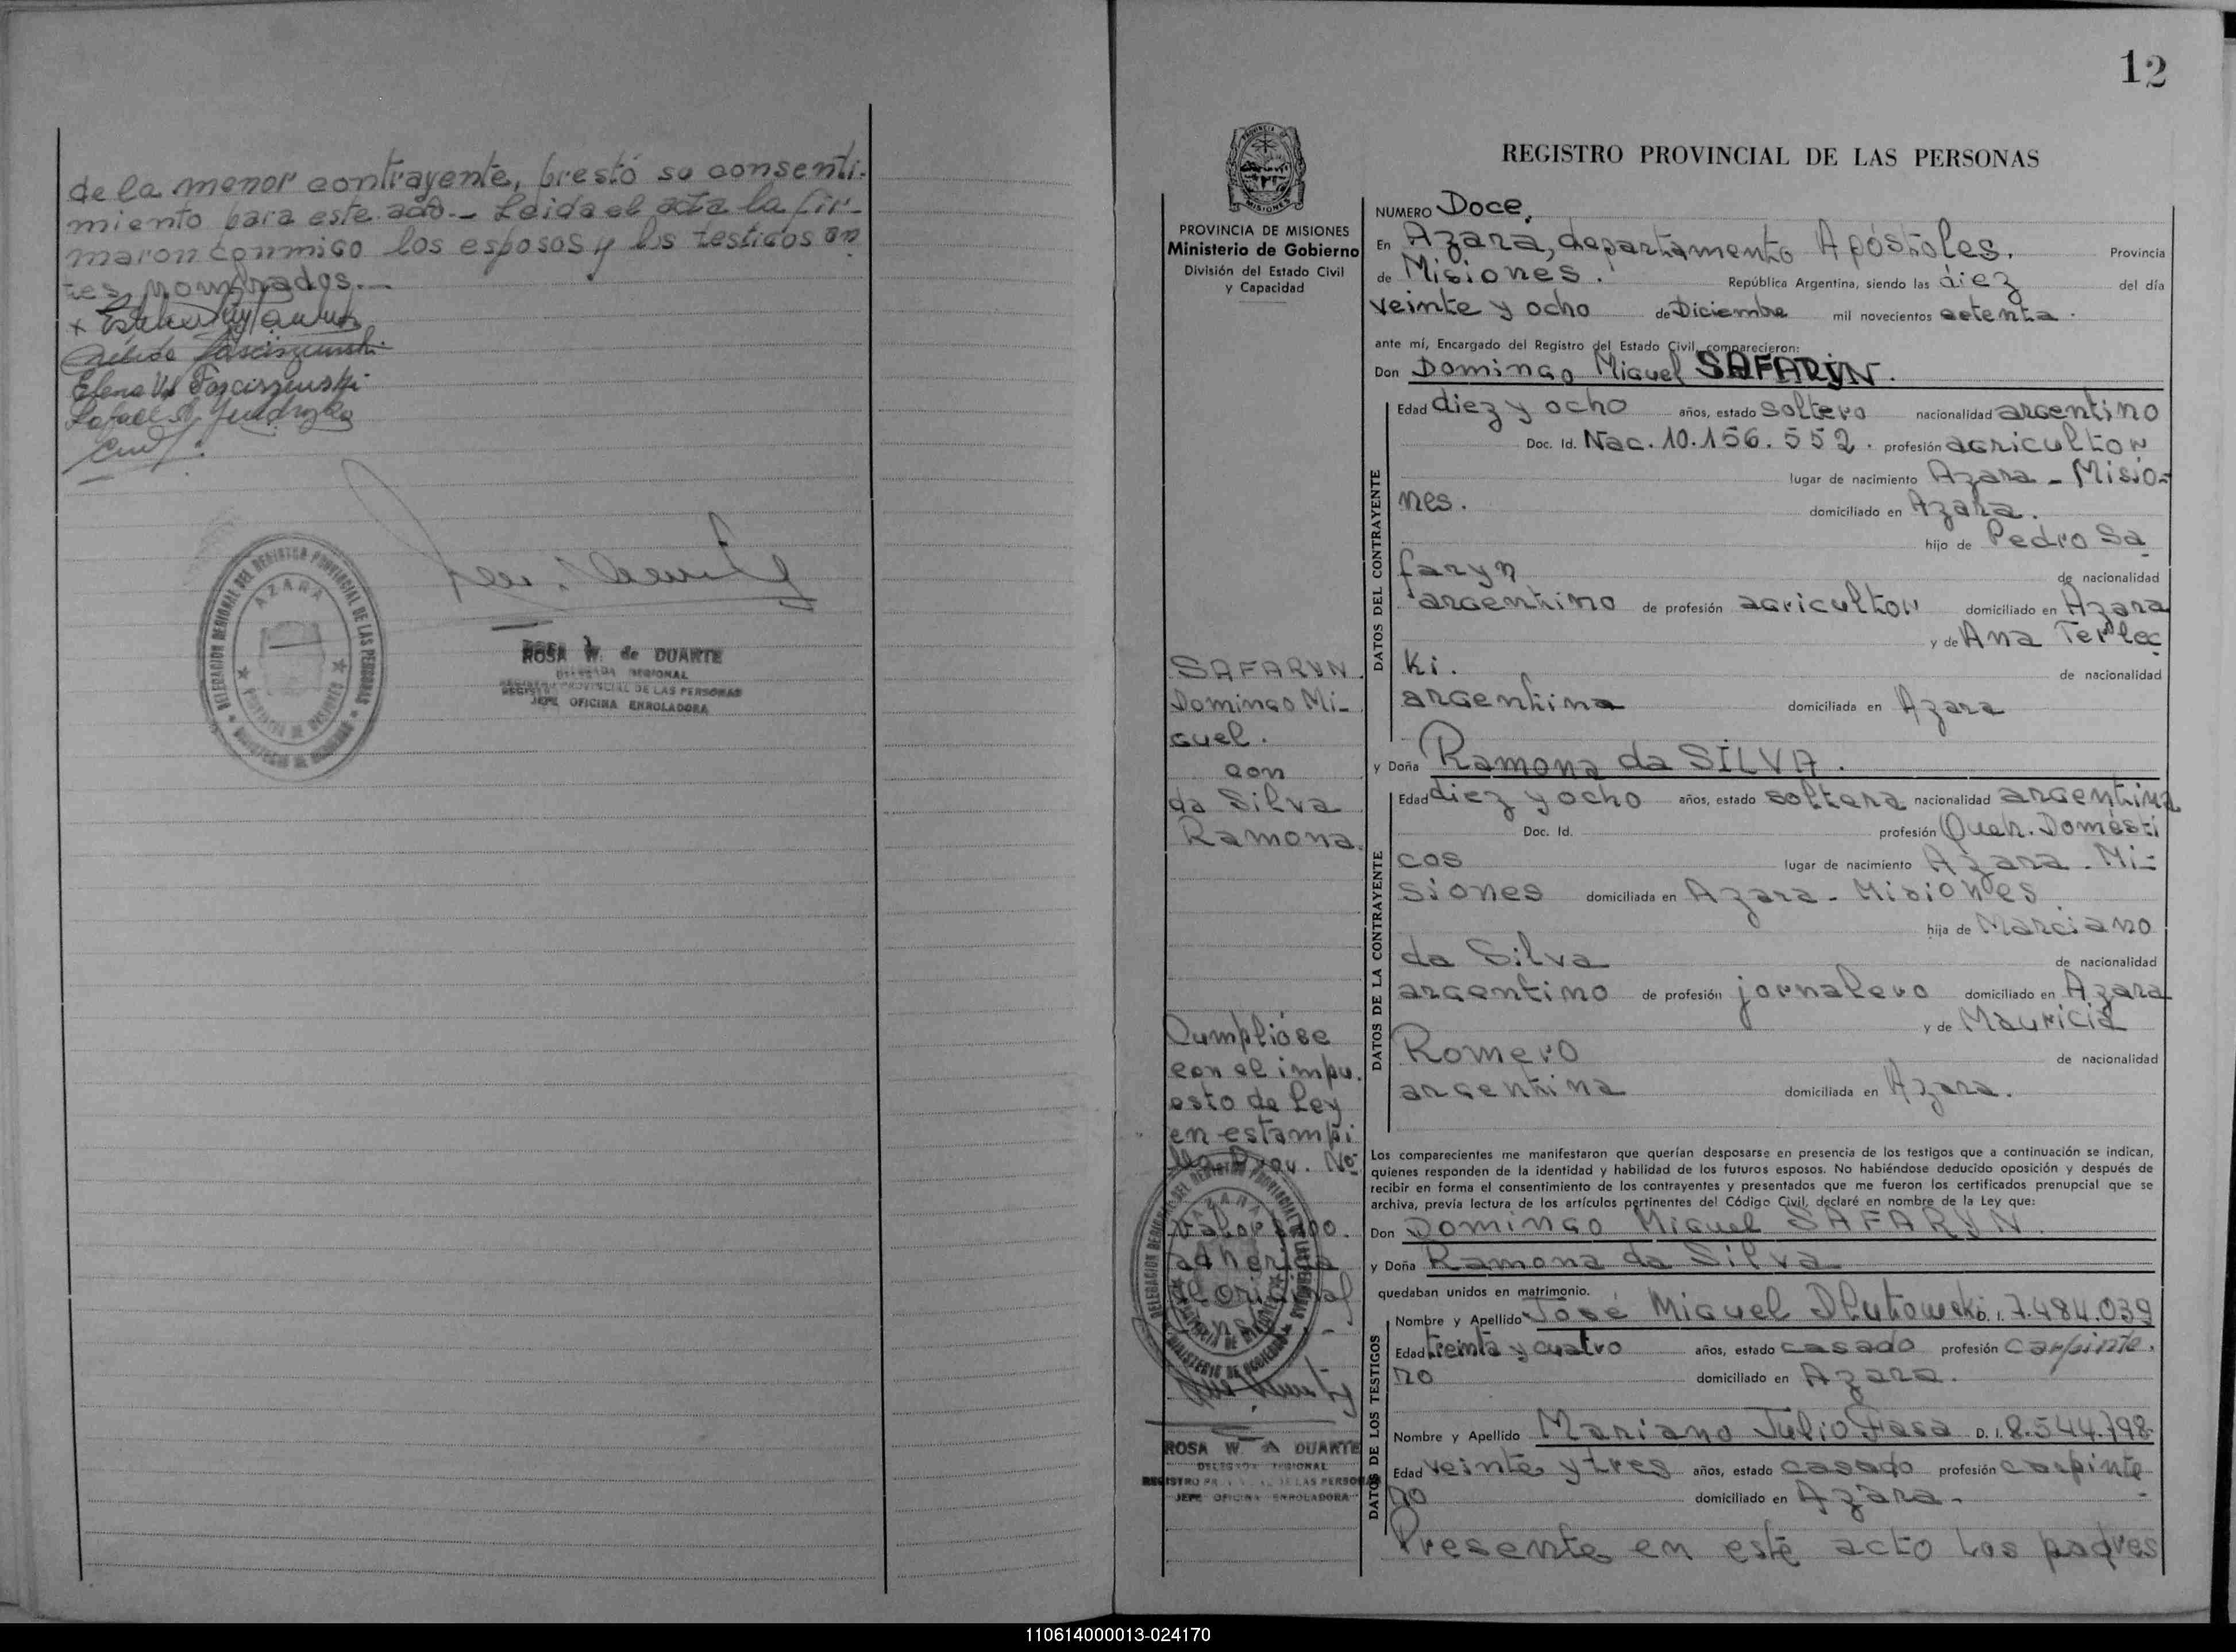 de la menor contrayente, prestó su consenti-
miento para este acto.- Leida el acta la fir-
maron conmigo los esposos y los testigos an
tes nombrados.-
Elena
Rafael
DELEGACION REGIONAL DEL REGISTRO PROVINCIAL DE LAS PERSONAS
AZARA
ROSA W. de DUARTE
DELEGADA REGIONAL
REGISTRO PROVINCIAL DE LAS PERSONAS
JEFE OFICINA ENROLADORA
12
PROVINCIA DE MISIONES
Ministerio de Gobierno
División del Estado Civil
y Capacidad
SAFARYN
Domingo Mi-
guel.
con
da Silva
Ramona.
Cumplióse
con el impu.
esto de Ley
en estampi
lla Prov. Nº
Valor
adherida
al original
DELEGACION REGIONAL DEL REGISTRO PROVINCIAL
AZARA
ROSA W. DUARTE
DELEGADA REGIONAL
JEFE OFICINA ENROLADORA
REGISTRO PROVINCIAL DE LAS PERSONAS
NUMERO Doce.
En Azara, departamento Apóstoles. Provincia
de Misiones. República Argentina, siendo las diez del día
veinte y ocho de Diciembre mil novecientos setenta.
ante mí, Encargado del Registro del Estado Civil, comparecieron:
Don Domingo Miguel SAFARYN.
DATOS DEL CONTRAYENTE
Edad diez y ocho años, estado soltero nacionalidad argentino
Doc. Id. Nac. 10.156.552. profesión agricultor
lugar de nacimiento Azara - Misio-
nes. domiciliado en Azara.
hijo de Pedro Sa
faryn de nacionalidad
argentino de profesión agricultor domiciliado en Azara
y de Ana Terlec
ki. de nacionalidad
argentina domiciliada en Azara
y Doña Ramona da SILVA.
DATOS DE LA CONTRAYENTE
Edad diez y ocho años, estado soltera nacionalidad argentina
Doc. Id. profesión Queh. Domésti
cos lugar de nacimiento Azara - Mi-
siones domiciliada en Azara - Misiones
hija de Marciano
da Silva de nacionalidad
argentino de profesión jornalero domiciliado en Azara
y de Mauricia
Romero de nacionalidad
argentina domiciliada en Azara.
Los comparecientes me manifestaron que querían desposarse en presencia de los testigos que a continuación se indican,
quienes responden de la identidad y habilidad de los futuros esposos. No habiéndose deducido oposición y después de
recibir en forma el consentimiento de los contrayentes y presentados que me fueron los certificados prenupcial que se
archiva, previa lectura de los artículos pertinentes del Código Civil, declaré en nombre de la Ley que:
Don Domingo Miguel SAFARYN.
y Doña Ramona da Silva
quedaban unidos en matrimonio.
DATOS DE LOS TESTIGOS
Nombre y Apellido José Miguel Dlutowski D. I. 7.484.039
Edad treinta y cuatro años, estado casado profesión carpinte.
ro domiciliado en Azara.
Nombre y Apellido Mariano Julio Fasa D. I. 8.544.798.
Edad veinte y tres años, estado casado profesión carpinte
ro domiciliado en Azara.
Presente en este acto los padres
110614000013-024170